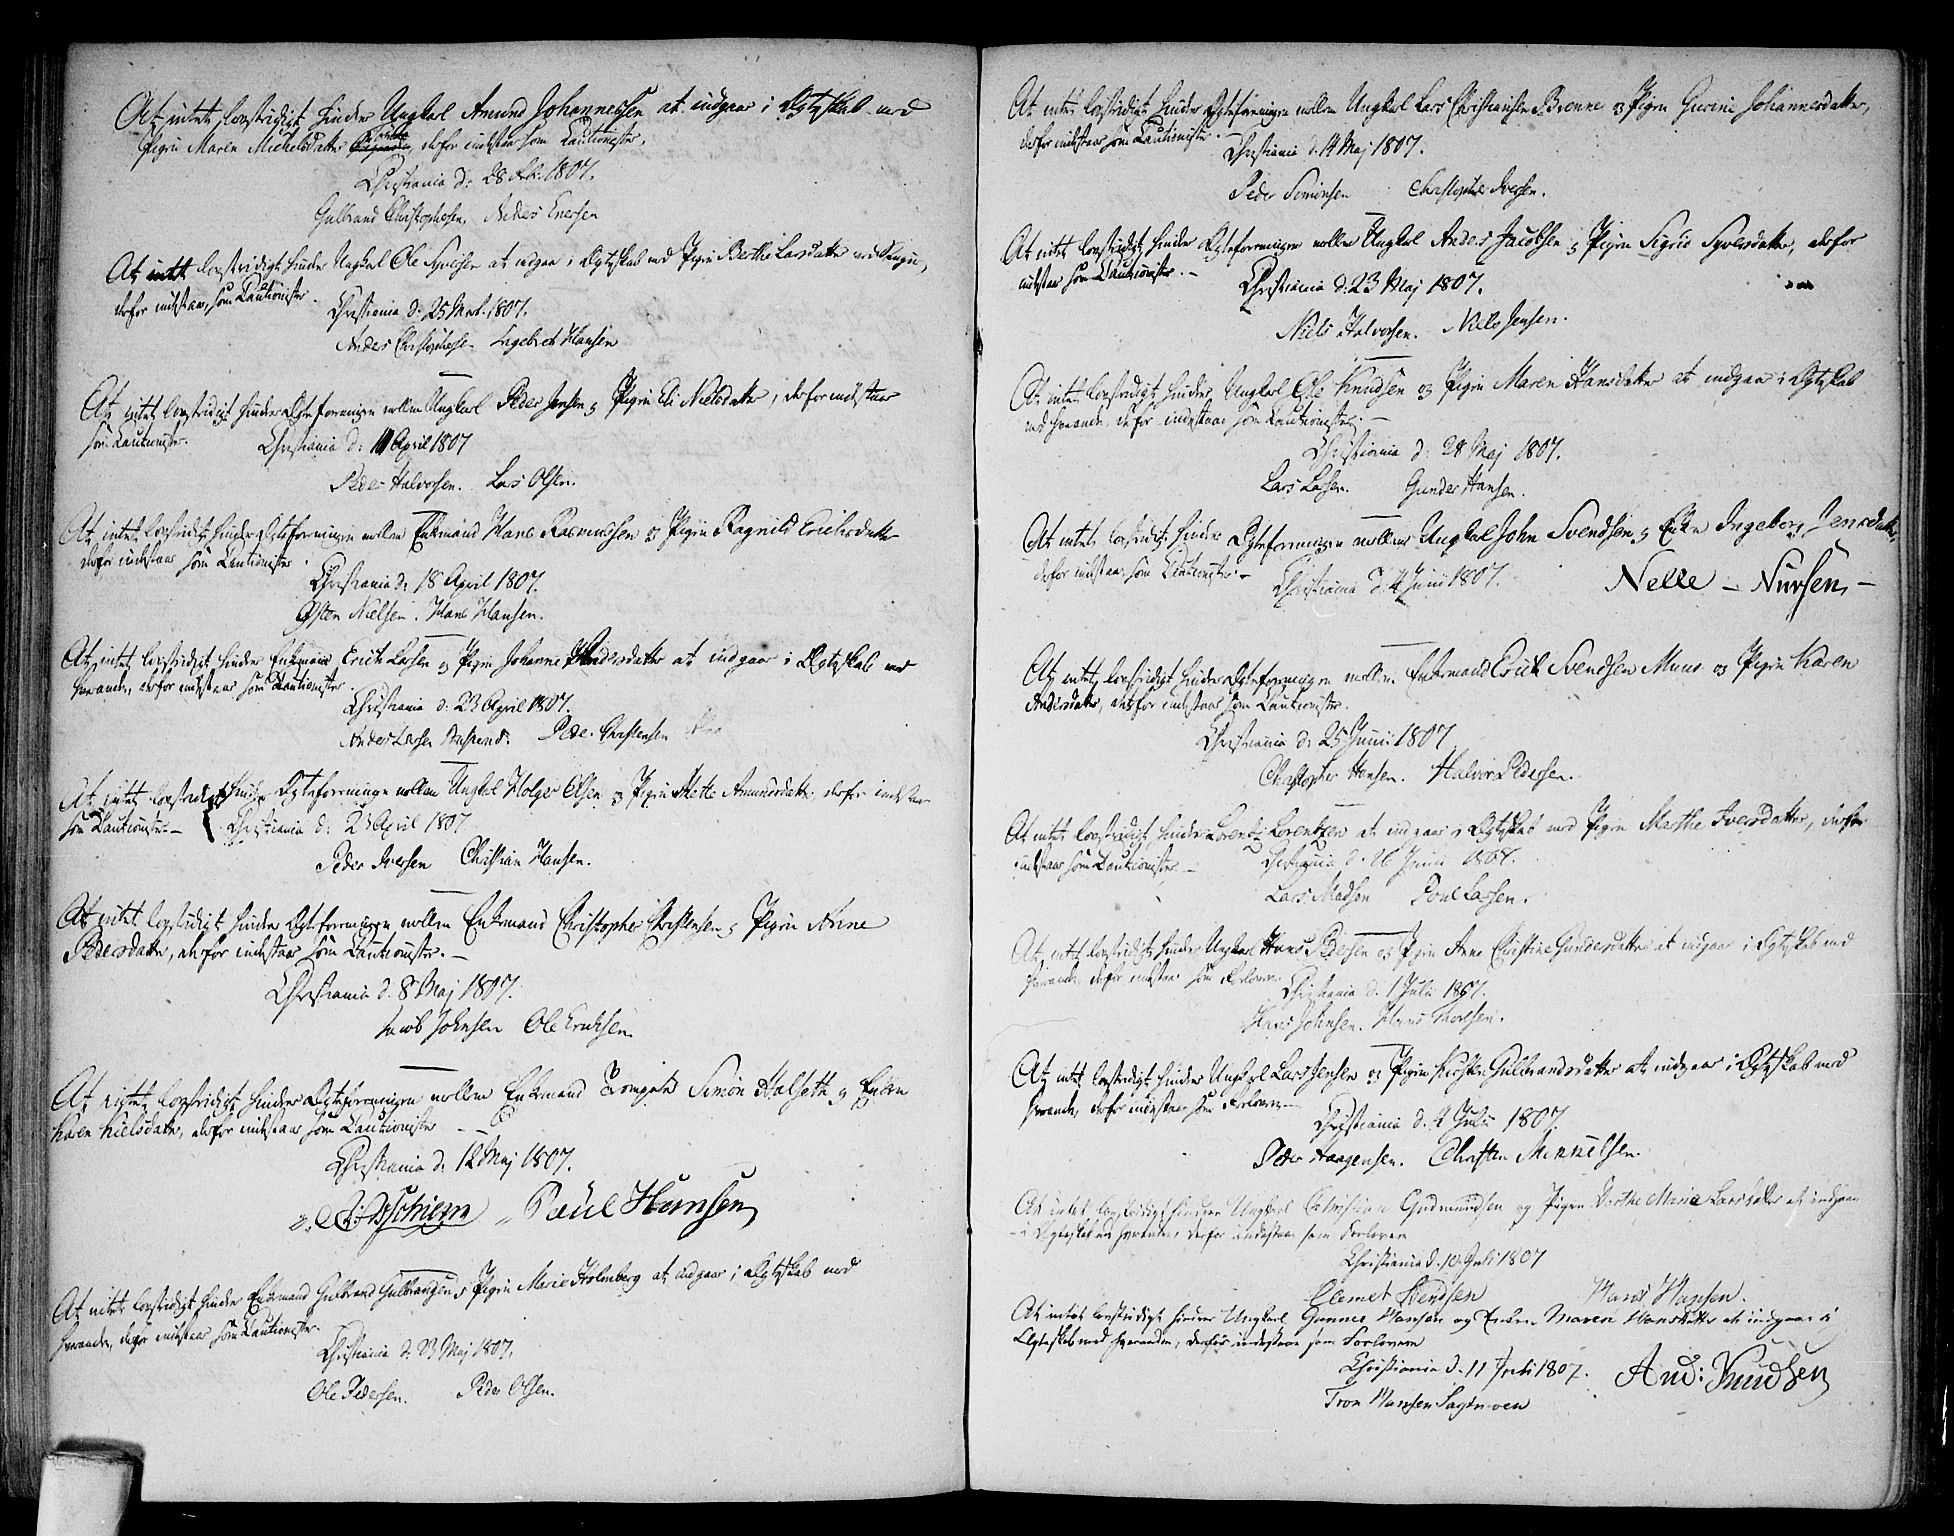 At intet lovstridigt hinder Ungkarl Amund Johannessen at indgaae i Ægteskab med
Pigen Maren Michelsdatter derfor indestaar som Cautionister.
Christiania d: 28 Feb: 1807.
Gulbrand Christophersen, Anders Enersen
At intet lovstridigt hinder Ungkarl Ole Syversen at indgaa i Ægteskab med Pigen Berthe Larsdatter
derfor indestaar, som Cautionister.
Christiania d: 25 Mart. 1807.
Anders Christophersen Ingebret Hansen
At intet lovstridigt hinder Ægteforeningen mellem Ungkarl Peder Jensen og Pigen Eli Nielsdatter, derfor indestaar
som Cautionister.
Christiania d: 11 April 1807
Peder Halvorsen. Lars Olsen.
At intet lovstridigt hinder Ægteforeningen mellem Enkemand Hans Rasmussen og Pigen Ragnild Erichsdatter
derfor indestaar som Cautionister.
Christiania d: 18 April 1807.
Østen Nielsen. Hans Hansen.
At intet lovstridigt hinder Enkemand Erich Larsen og Pigen Johanne Andersdatter at indgaar i Ægteskab med
hverandre, derfor indestaar som Cautionister.
Christiania d: 23 April 1807.
Anders Larsen Peder Christensen
At intet lovstridigt hinder Ægteforeninge mellem Ungkarl Holger Olsen og Pigen Mette Amundsdatter, derfor indestaar
som Cautionister. - Christiania d: 23 April 1807
Peder Iversen Christian Hansen.
At intet lovstridigt hinder Ægteforeningen mellem Enkemand Christopher Christensen og Pigen Anne
Pedersdatter, derfor indestaar som Cautionister. -
Christiania d. 8 Maj 1807.
Jacob Johnsen Ole Erichsen.
At intet lovstridigt hinder Ægteforeningen mellem Enkemand Simon Halseth og Enken
Karen Nielsdatter, derfor indestaar som Cautionister
Christiania d. 12 Maj 1807.
Paul Hansen
At intet lovstridigt hinder Enkemand Gulbrand Gulbrandsen og Pigen Marie Holmberg at indgaar i Ægteskab med
hverandre, derfor indestaar som Cautionister.
Christiania d: 23 Maj 1807.
Ole Pedersen. Peder Olsen.
At intet lovstridigt hinder Ægteforeningen mellem Ungkarl Lars Christiansen Brenne og Pigen Gurine Johannesdatter,
derfor indestaar som Cautionister. -
Christiania d. 14 Maj 1807.
Peder Simonsen Christopher Iversen.
At intet lovstridigt hinder Ægteforeningen mellem Ungkarl Anders Jacobsen og Pigen Sigrid Syversdatter, derfor
indestaar som Cautionister. -
Christiania d: 23 Maj 1807.
Niels Halvorsen. Niels Jensen.
At intet lovstridigt hinder Ungkarl Ole Knudsen og Pigen Maren Hansdatter at indgaar i Ægteskab
med hverandre, derfor indestaar som Cautionister. -
Christiania d: 28 Maj 1807.
Lars Larsen. Gunder Hansen.
At intet lovstridigt hinder Ægteforeningen mellem Ungkarl John Svendsen og Enken Ingeborg Jensdatter,
derfor indestaar som Cautionister. -
Christiania d. 4 Junii 1807.
Nelle - Nursen -
At intet lovstridigt hinder Ægteforeningen mellem Enkemand Erich Svendsen Muus og Pigen Karen
Andersdatter, derfor indestaar som Cautionister.
Christiania d: 25 Junii 1807
Christopher Hansen. Halvor Pedersen.
At intet lovstridigt hinder Lorentz Lorentzen at indgaar i Ægteskab med Pigen Marthe Iversdatter, derfor
indestaar som Cautionister. -
Christiania d. 26 Junii 1807.
Lars Madsen Poul Larsen.
At intet lovstridigt hinder Ungkarl Hans Pedersen og Pigen Anne Christine Gundersdatter at indgaar i Ægteskab med
hverandre, derfor indestaar som Forlovere.
Christiania d. 1 Julii 1807.
Hans Johnsen. Hans Thorsen.
At intet lovstridigt hinder Ungkarl Lars Jensen og Pigen Kirsten Gulbrandsdatter at indgaar i Ægteskab med
hverandre, derfor indestaar som Forlovere. -
Christiania d. 4 Julii 1807.
Peder Haagensen. Christen Mennelsen.
At intet lovstridigt hinder Ungkarl Christian Gudmundsen og Pigen Dorthe Maria Larsdatter at indgaae
i Ægteskab med hverandre, derfor indestaar som Forlovere
Christiania d. 10 Juli 1807
Clemet Svendsen Hans Hansen.
At intet lovstridigt hindrer Ungkarl Gunner Hansen og Enken Maren Hansdatter at indgaae i
Ægteskab med hverandre, derfor indestaae som Forlovere
Christiania d. 11 Juli 1807.
And: Knudsen
Tron Hansen